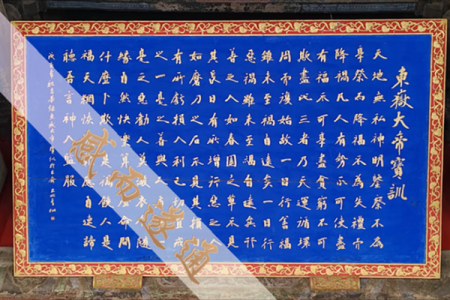 東嶽大帝寶訓
天地無私神明鑒察不為
享祭而降福不為失禮而
降禍凡人有勢不可使盡
有福不可享盡貧窮不可
欺盡此三者乃天運循環
周而復始故一日行善福
雖未至禍自遠矣一日行
惡禍雖未至福自遠矣行
善之人如春園之草不見
其長日有所增行惡之人
如磨刀之石不見其損日
有所虧損人利己切宜戒
之一毫之善與人方
毫之惡勸人莫做衣食隨
緣自然快樂算什麼命問
什麼卜欺人是禍饒人是
福天網恢恢報應甚速諦
聽吾言神人鑒服
感而遂通